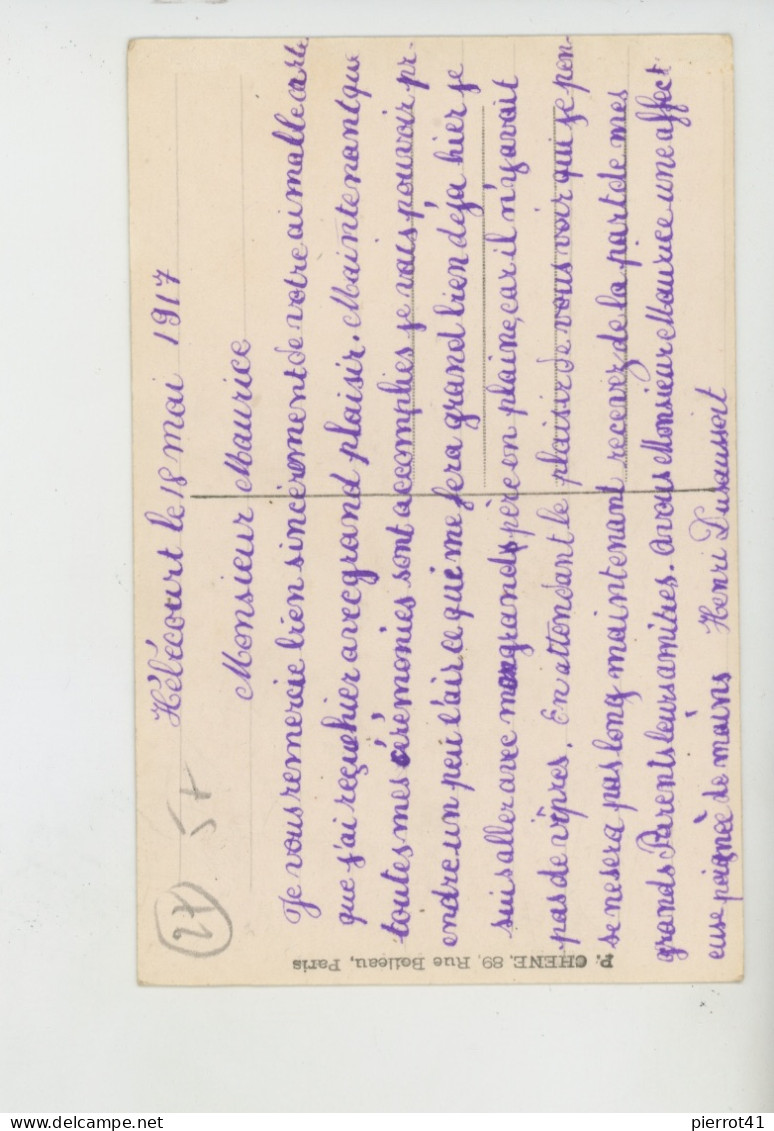 Hébécourt le 18 mai 1917
Monsieur Maurice
Je vous remercie bien sincèrement de votre aimalle carte
que j'ai reçue hier avec grand plaisir. Maintenant que
toutes mes cérémonies sont accomplies je vais pouvoir pr-
endre un peu l'air ce qui me fera grand bien déja hier je
suis aller avec mon grand père en plaine, car il n'y avait
pas de vêpres. En attendant le plaisir de vous voir qui je pen-
se ne sera pas long maintenant recevez de la part de mes
grands Parents leurs amitiés. a vous Monsieur Maurice une affect-
euse poignée de mains Henri Dusaussoit
27
5+
P. CHENE, 89, Rue Boileau, Paris
pierrot41